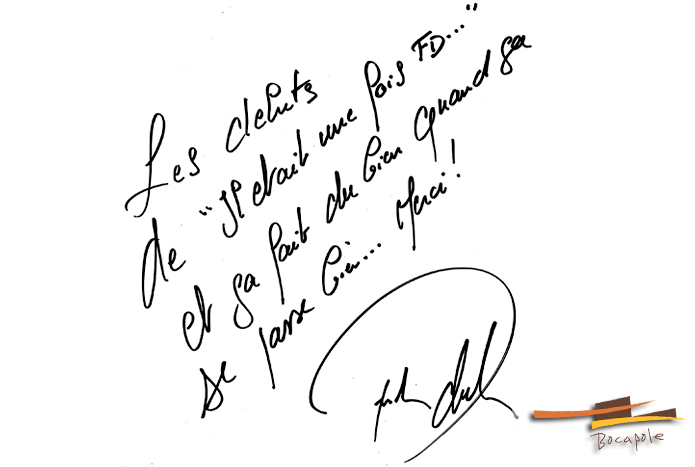 Les debuts
de "Il etait une fois FD..."
et ça fait du bien quand ça
se passe bien... Merci!
Bocapole